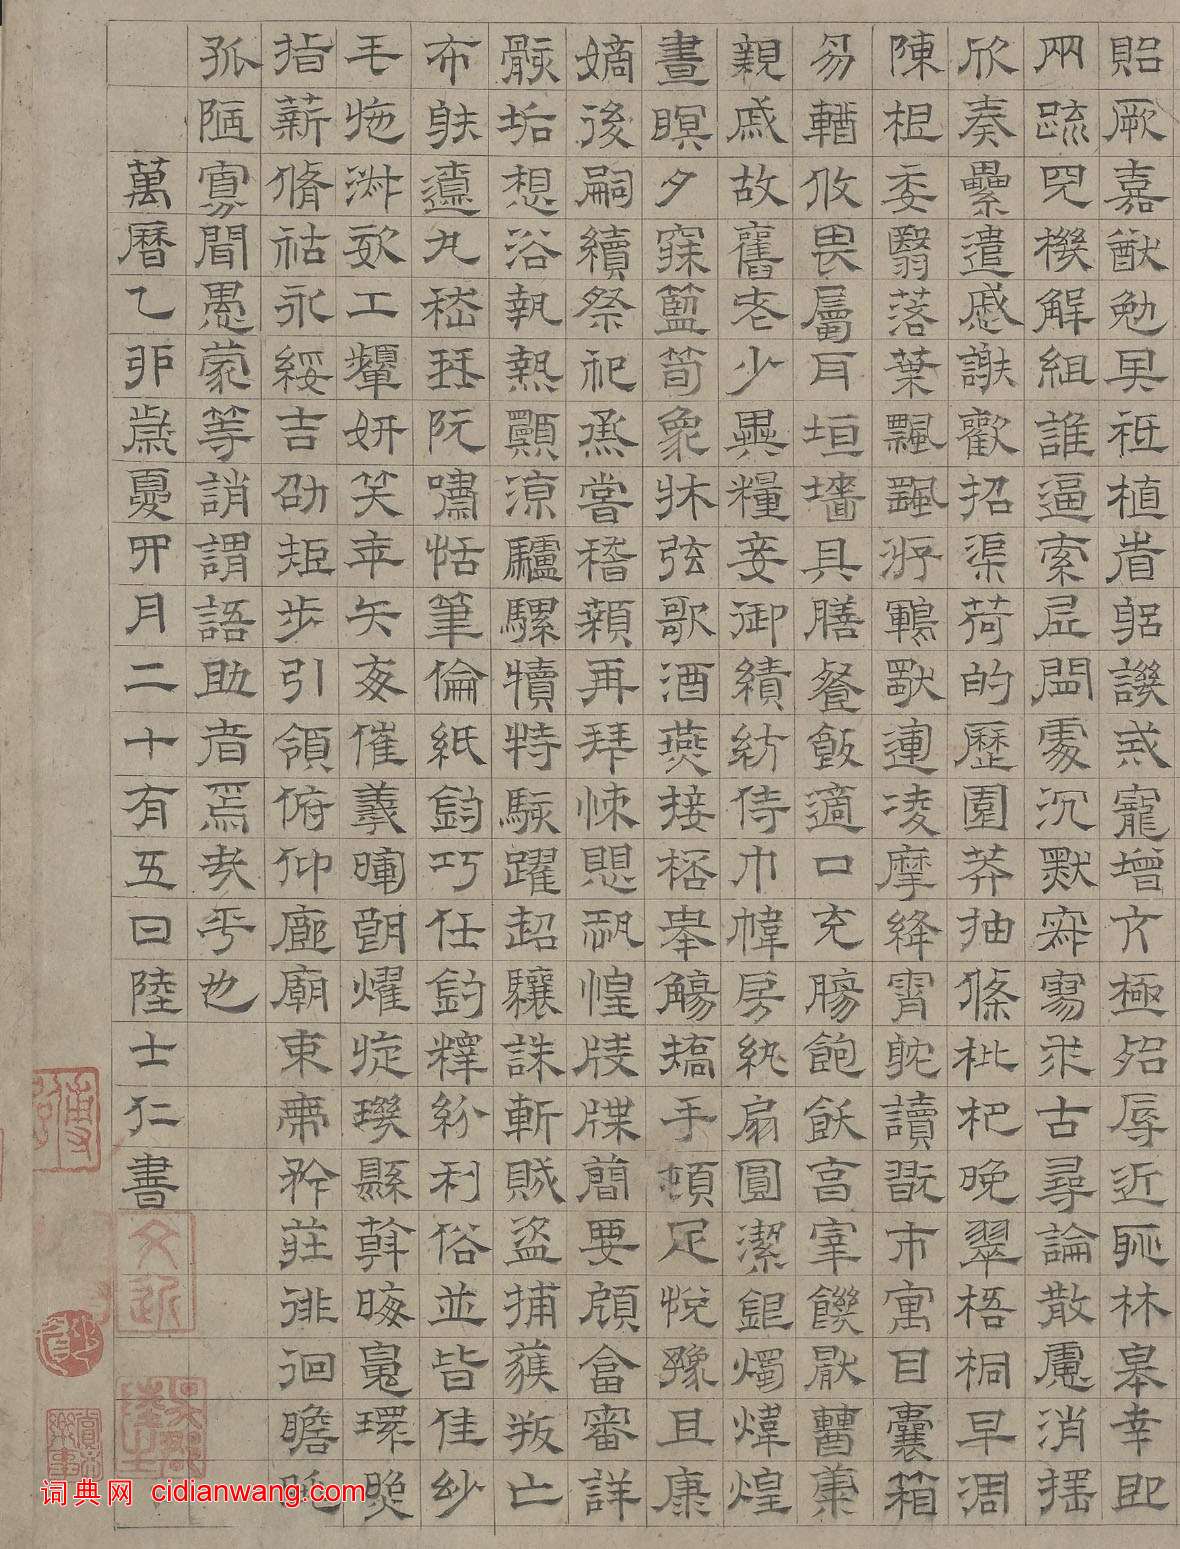 貽厥嘉猷勉其祗植省躬譏戒寵增亢極殆辱近恥林皋幸即
兩疏見機解組誰逼索居閒處沉默寂寥求古尋論散慮消搖
欣奏纍遣慼謝歡招渠荷的歷園莽抽條枇杷晚翠梧桐早凋
陳根委翳落葉飄颻游鵾獨運凌摩絳霄耽讀翫市寓目囊箱
易輶攸畏屬耳垣墻具膳餐飯適口充腸飽飫亯宰饑厭糟糠
親戚故舊老少異糧妾御績紡侍巾幃房紈扇圓潔銀燭煒煌
晝瞑夕寐籃筍象牀弦歌酒燕接桮舉觴矯手頓足悅豫且康
嫡後嗣續祭祀烝嘗稽顙再拜悚懼恐惶牋牒簡要顧答審詳
骸垢想浴執熱願涼驢騾犢特駭躍超驤誅斬賊盜捕獲叛亡
布射遼丸嵇琴阮嘯恬筆倫紙鈞巧任釣釋紛利俗並皆佳妙
毛施淑姿工顰妍笑年矢每催羲暉朗燿旋璣縣斡晦魄環照
指薪脩祜永綏吉劭矩步引領俯仰廊廟束帶矜莊徘徊瞻眺
孤陋寡聞愚蒙等誚謂語助者焉哉乎也
萬曆乙卯歲夏四月二十有五日陸士仁書
文近
词典网 cidianwang.com